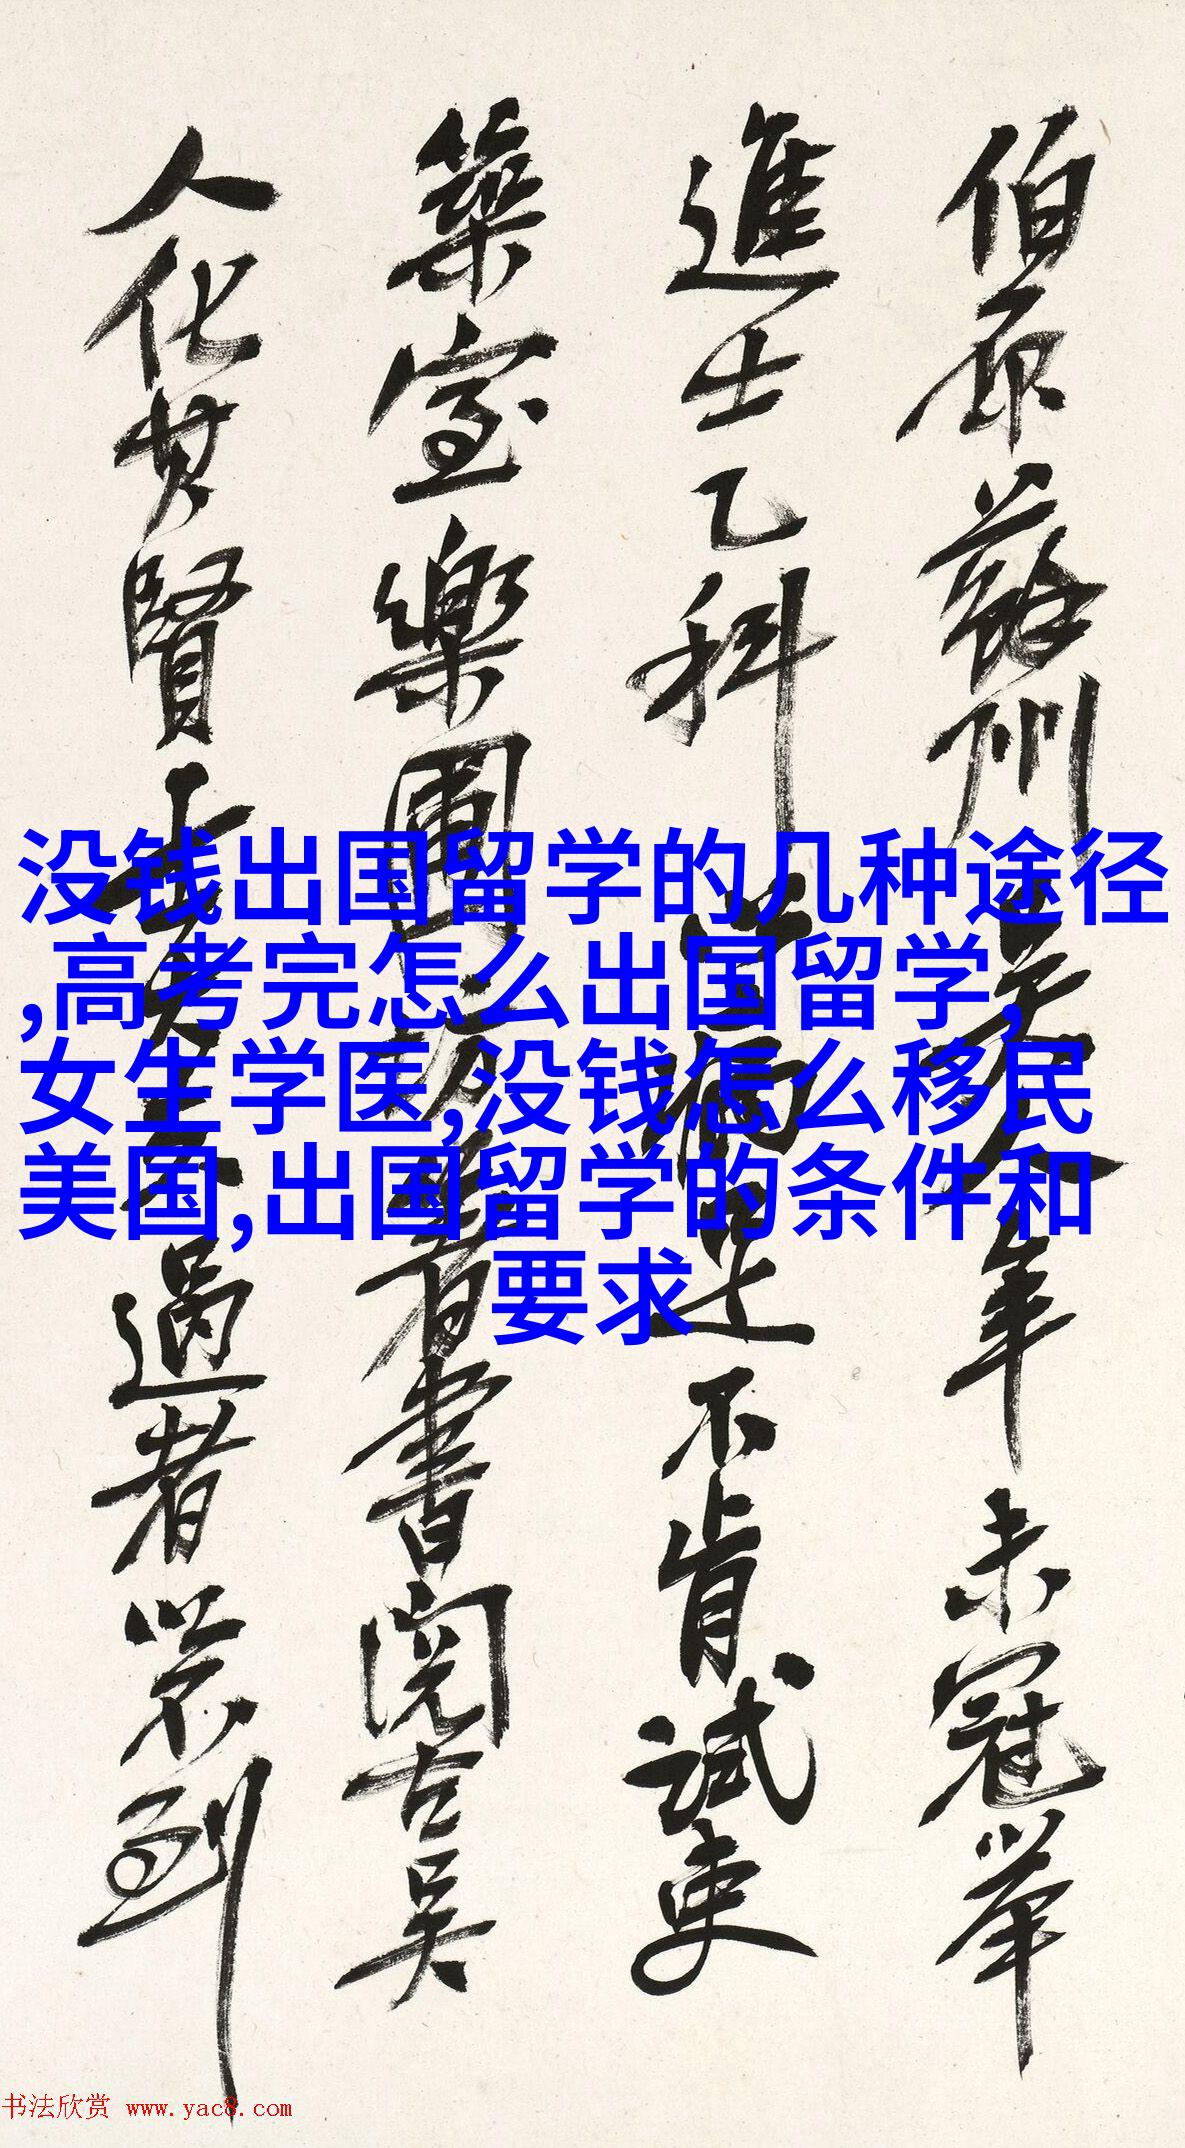 伯原蘇州人年未冠舉
進士乙科病足不肯試吏
築室樂圃坊著書閱古吳
人化其賢過者以不到
没钱出国留学的几种途径
,高考完怎么出国留学,
女生学医,没钱怎么移民
美国,出国留学的条件和
要求
书法欣赏 www.yac8.com